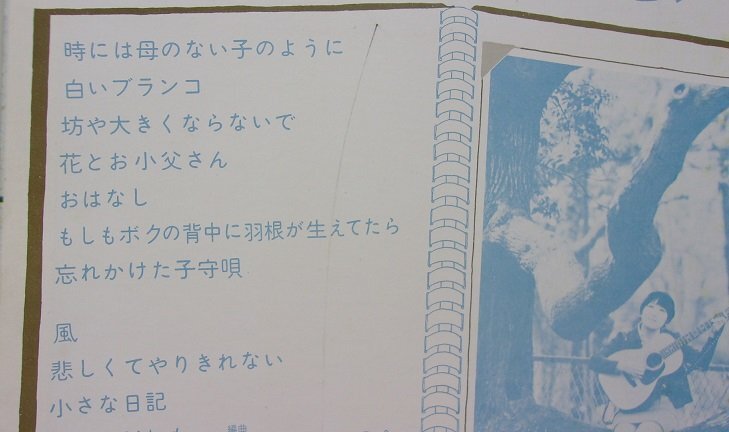 時には母のない子のように
白いブランコ
坊や大きくならないで
花とお小父さん
おはなし
もしもボクの背中に羽根が生えてたら
忘れかけた子守唄
風
悲しくてやりきれない
小さな日記
編曲